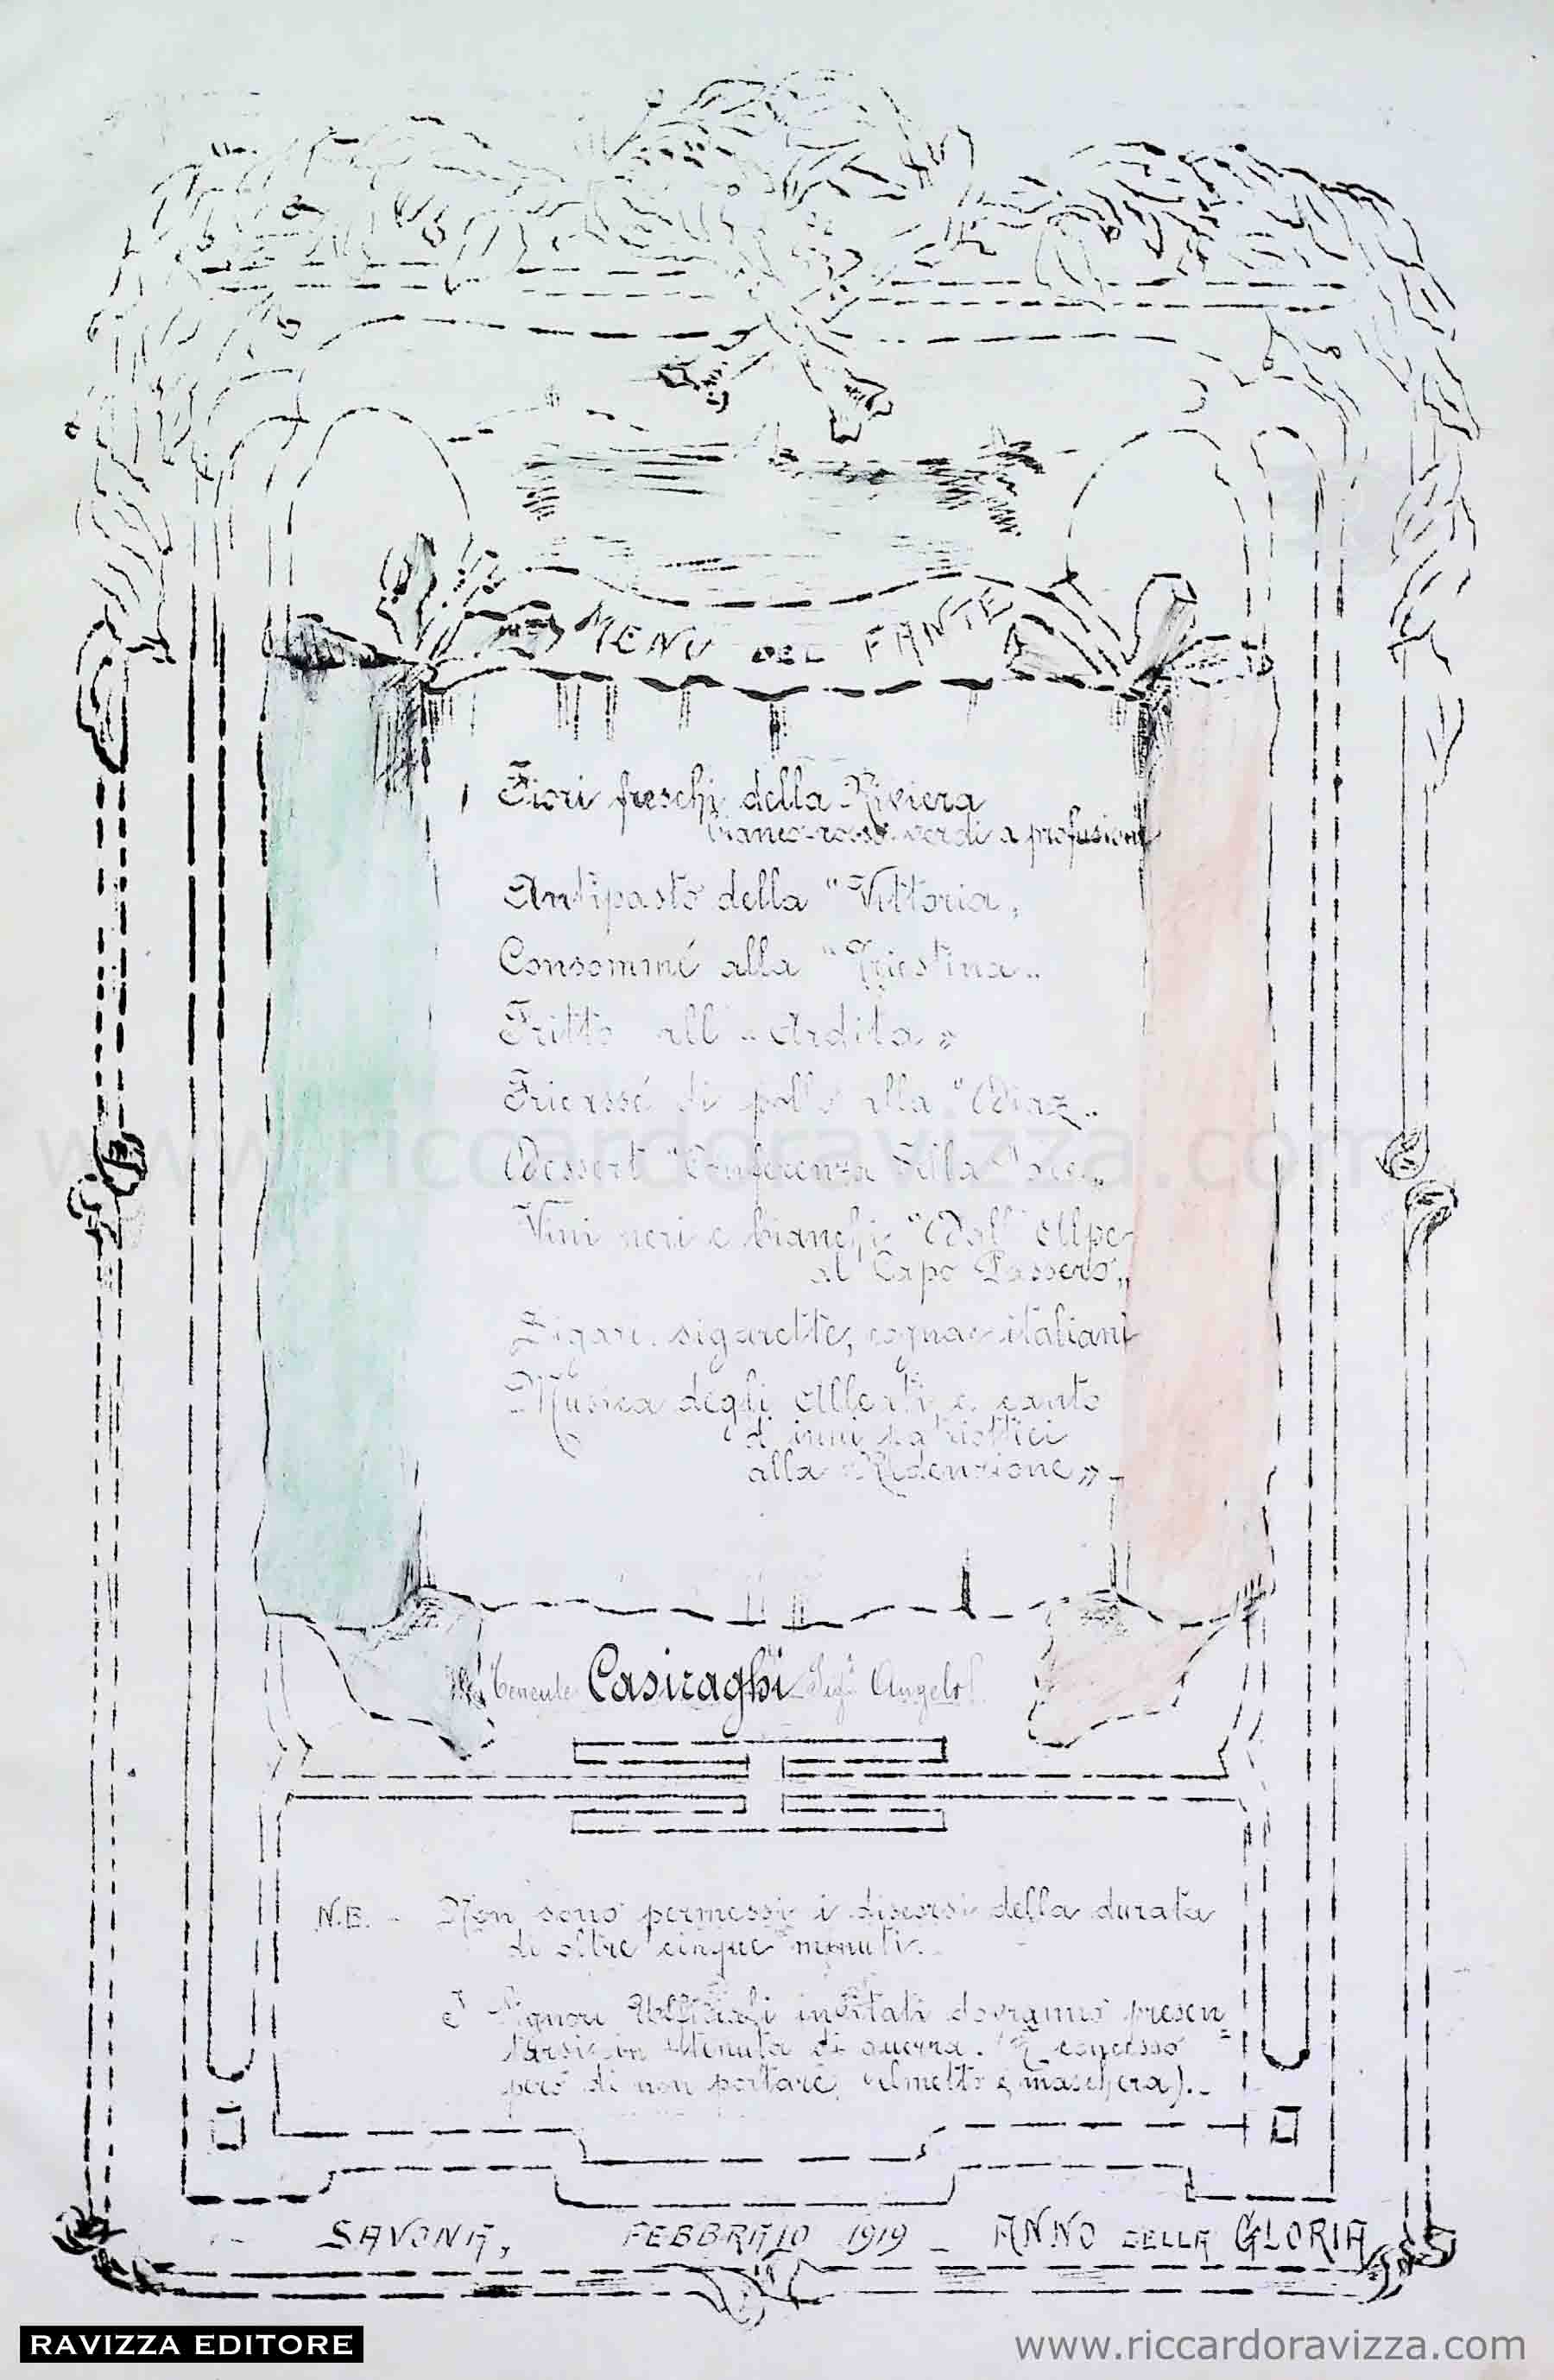 MENU DEL FANTE
Fiori freschi della Riviera
bianco-rosso-verdi a profusione
Antipasto della "Vittoria„
Consommé alla "Triestina„
Fritto all' "Ardita»
Fricassé di pollo alla "Diaz„
Dessert "Conferenza della Pace„
Vini neri e bianchi "Dall'Alpe
al Capo Passero„
Sigari, sigarette, cognac italiani
Musica degli Alleati e canto
di inni patriottici
alla «Redenzione»-
Tenente Casiraghi Sigr Angelo
N.B. - Non sono permessi i discorsi della durata
di oltre cinque minuti.
I Signori Ufficiali invitati dovranno presen=
tarsi in tenuta di guerra. (È concesso
però di non portare elmetto e maschera).-
SAVONA, FEBBRAIO 1919 - ANNO DELLA GLORIA
www.riccardoravizza.com
RAVIZZA EDITORE
www.riccardoravizza.com